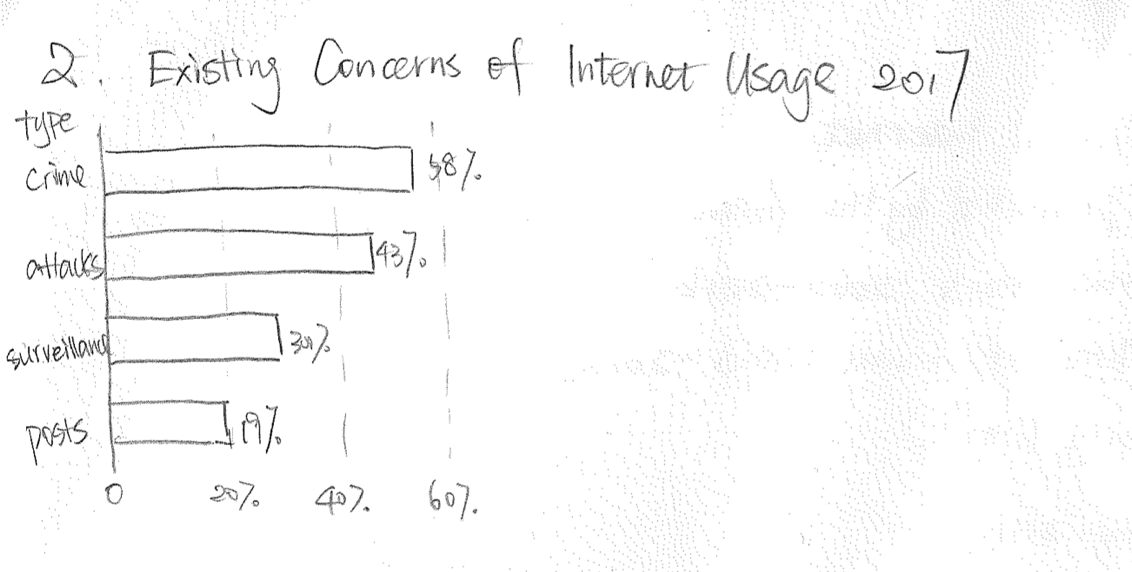 2. Existing Concerns of Internet Usage 2017
type
crime 58%
attacks 43%
surveillance 30%
posts 19%
0 20% 40% 60%